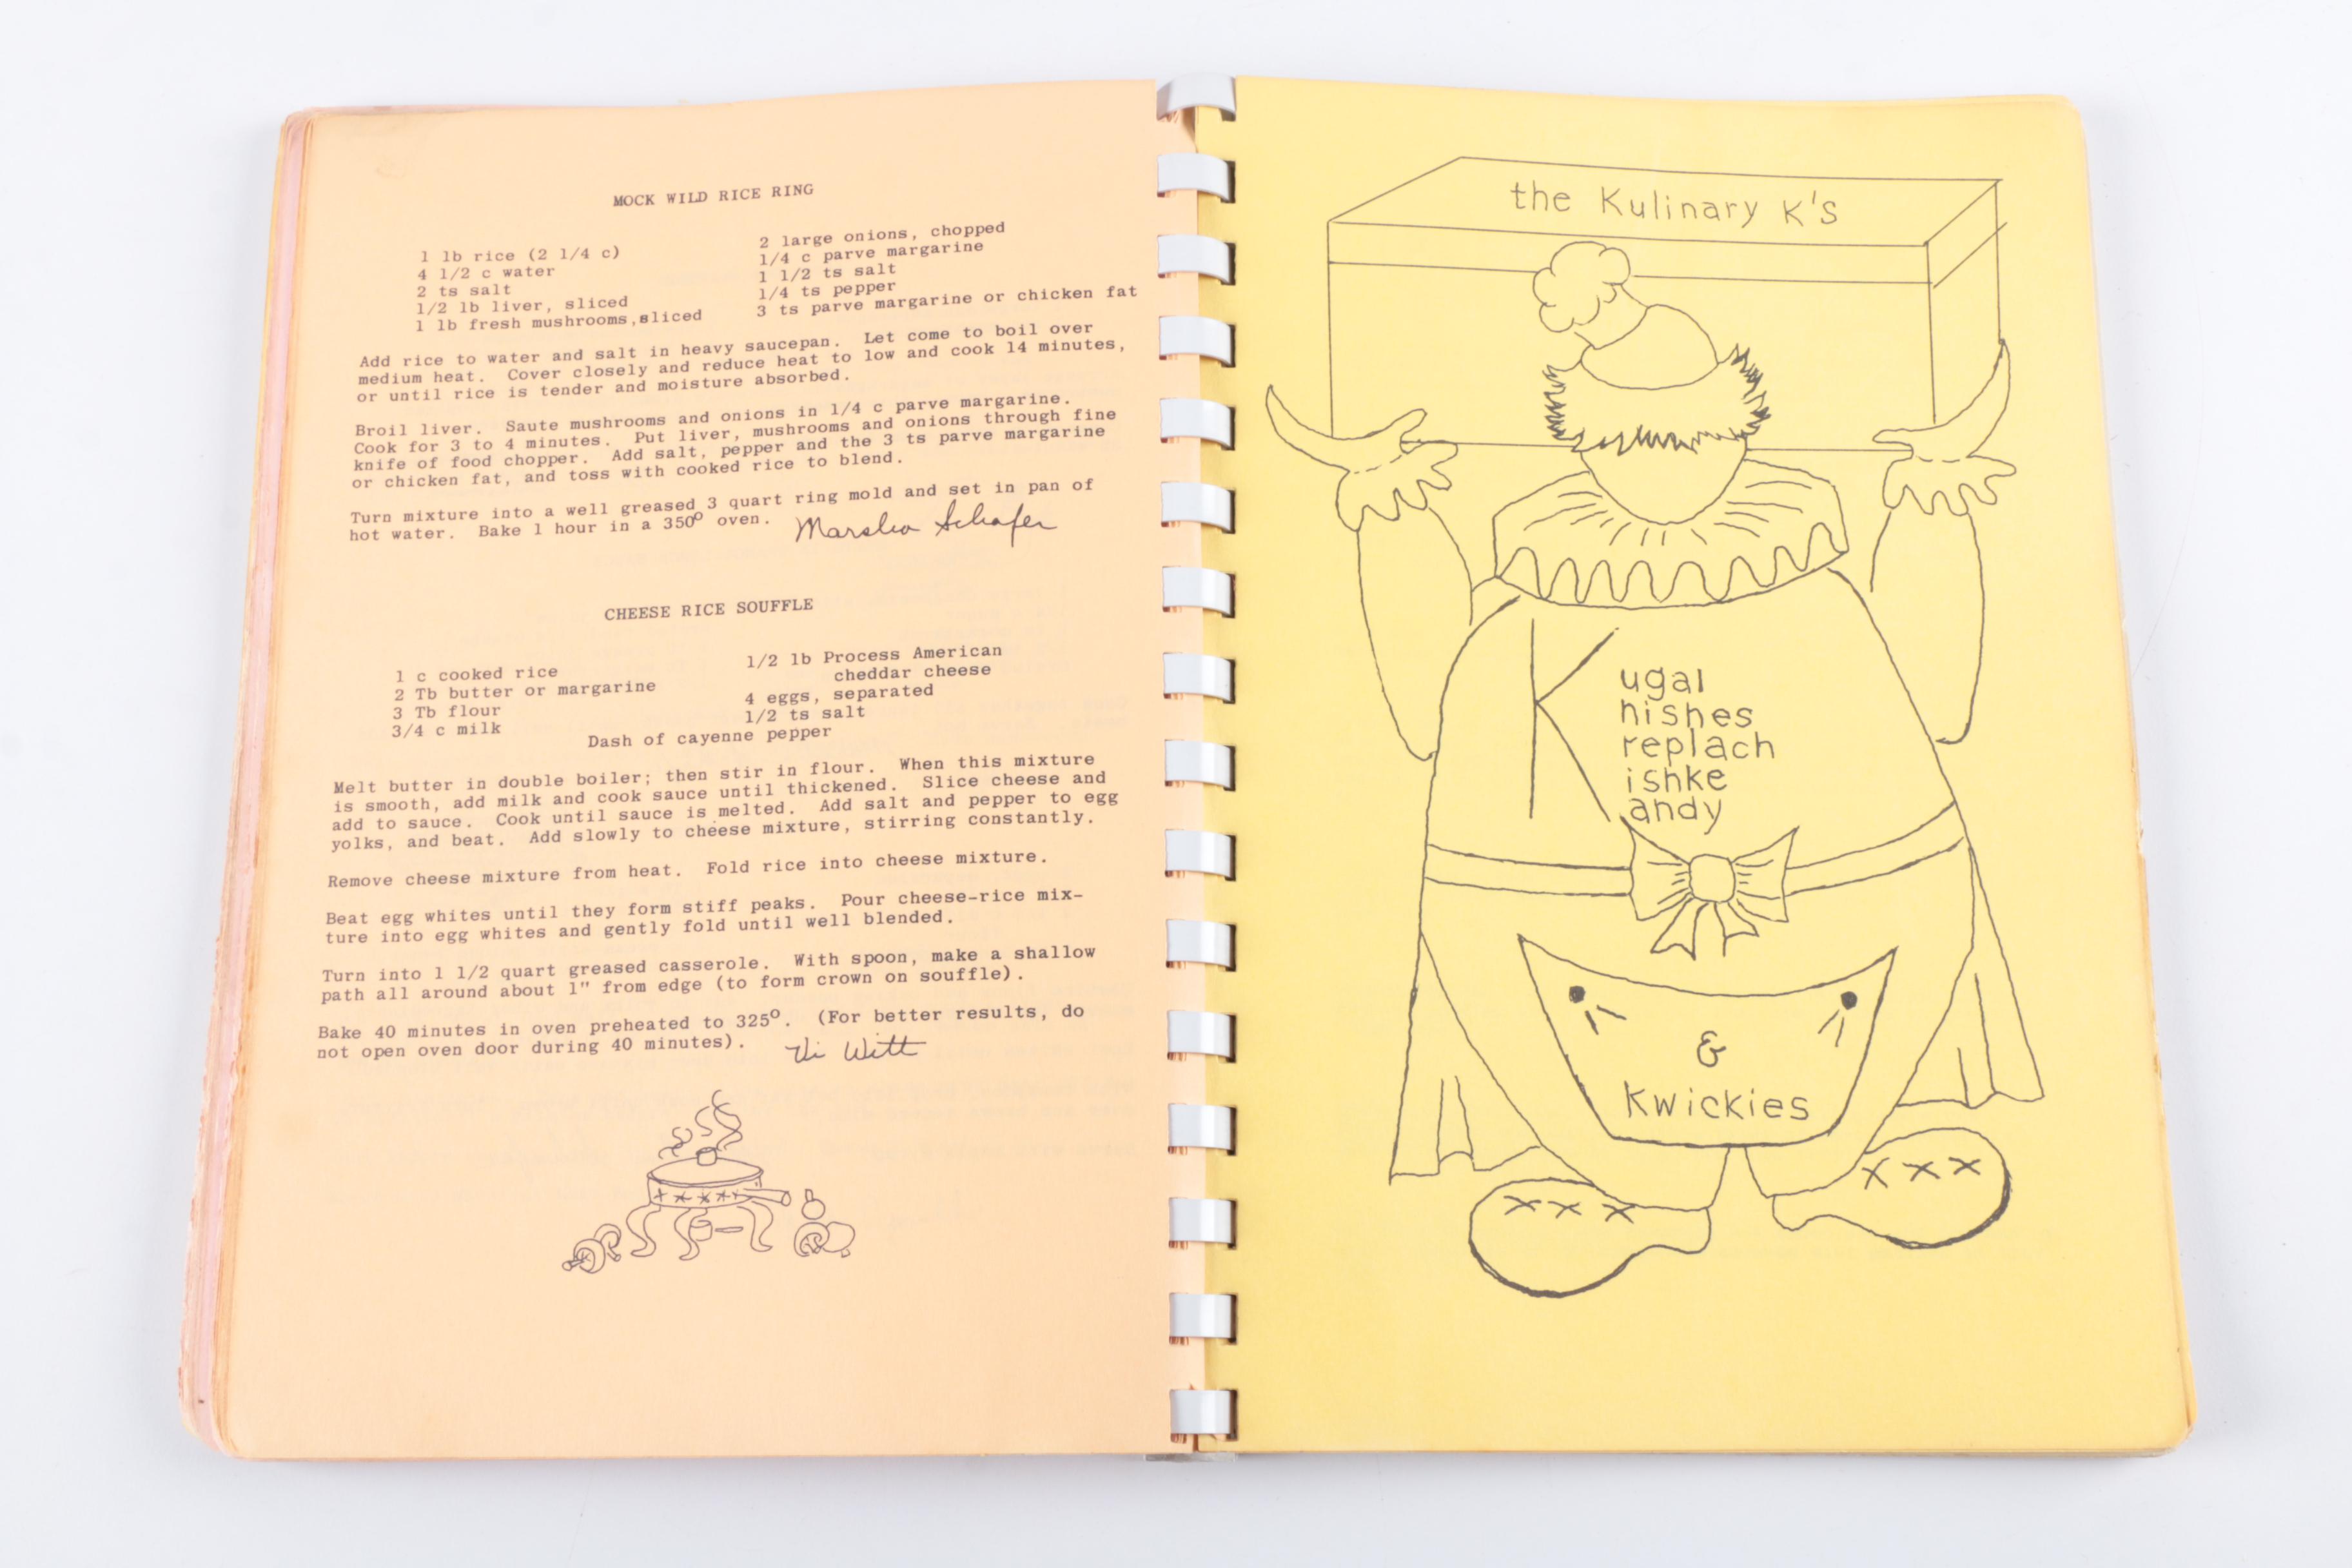 MOCK WILD RICE RING
1 lb rice (2 1/4 c)
4 1/2 c water
2 ts salt
1/2 lb liver, sliced
1 lb fresh mushrooms,sliced
2 large onions, chopped
1/4 c parve margarine
1 1/2 ts salt
1/4 ts pepper
3 ts parve margarine or chicken fat
Add rice to water and salt in heavy saucepan. Let come to boil over
medium heat. Cover closely and reduce heat to low and cook 14 minutes,
or until rice is tender and moisture absorbed.
Broil liver. Saute mushrooms and onions in 1/4 c parve margarine.
Cook for 3 to 4 minutes. Put liver, mushrooms and onions through fine
knife of food chopper. Add salt, pepper and the 3 ts parve margarine
or chicken fat, and toss with cooked rice to blend.
Turn mixture into a well greased 3 quart ring mold and set in pan of
hot water. Bake 1 hour in a 350° oven. Marsha Schafer
CHEESE RICE SOUFFLE
1 c cooked rice
2 Tb butter or margarine
3 Tb flour
3/4 c milk
1/2 lb Process American
cheddar cheese
4 eggs, separated
1/2 ts salt
Dash of cayenne pepper
Melt butter in double boiler; then stir in flour. When this mixture
is smooth, add milk and cook sauce until thickened. Slice cheese and
add to sauce. Cook until sauce is melted. Add salt and pepper to egg
yolks, and beat. Add slowly to cheese mixture, stirring constantly.
Remove cheese mixture from heat. Fold rice into cheese mixture.
Beat egg whites until they form stiff peaks. Pour cheese-rice mix-
ture into egg whites and gently fold until well blended.
Turn into 1 1/2 quart greased casserole. With spoon, make a shallow
path all around about 1" from edge (to form crown on souffle).
Bake 40 minutes in oven preheated to 325°. (For better results, do
not open oven door during 40 minutes). Vi Witt
the Kulinary K's
K ugal
nishes
replach
ishke
andy
&
Kwickies